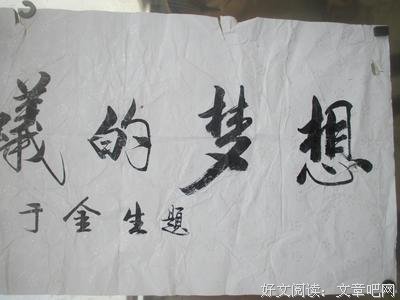 蟻的梦想
于金生题
好文阅读：文章吧网